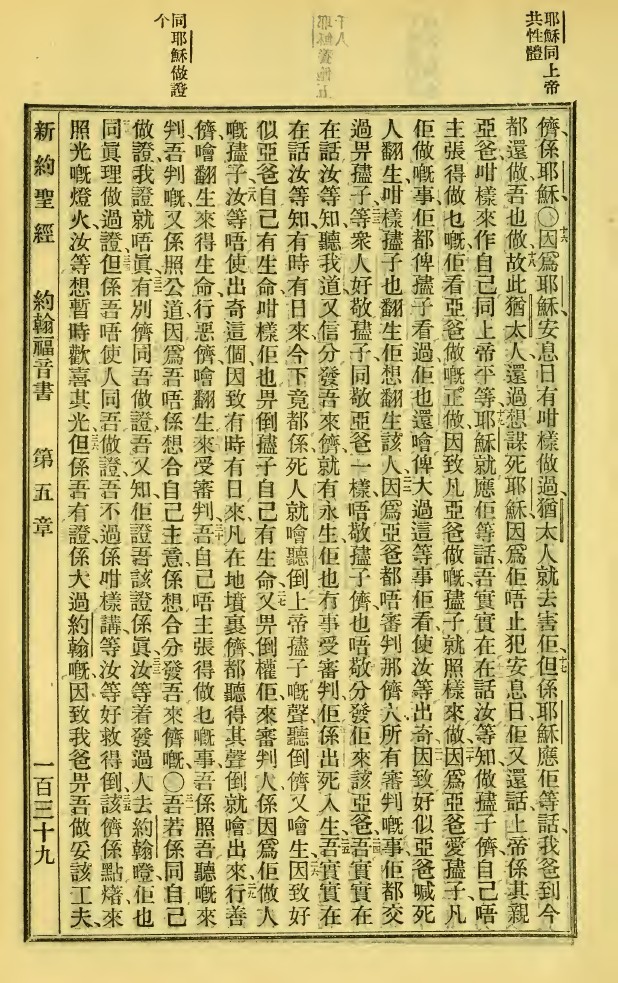 耶穌同上帝
共性體
同耶穌做證
个
儕係耶穌〇因爲耶穌安息日有咁樣做過猶太人就去害佢但係耶穌應佢等話我爸到今
都還做吾也做故此猶太人還過想謀死耶穌因爲佢唔止犯安息日佢又還話上帝係其親
亞爸咁樣來作自己同上帝平等耶穌就應佢等話吾實實在在話汝等知做㜽子儕自己唔
主張得做乜嘅佢看亞爸做嘅正做因致凡亞爸做嘅㜽子就照樣來做因爲亞爸愛㜽子凡
佢做嘅事佢都俾㜽子看過佢也還噲俾大過這等事佢看使汝等出奇因致好似亞爸喊死
人翻生咁樣㜽子也翻生佢想翻生該人因爲亞爸都唔審判那儕人所有審判嘅事佢都交
過畀㜽子等衆人好敬㜽子同敬亞爸一樣唔敬㜽子儕也唔敬分發佢來該亞爸吾實實在
在話汝等知聽我道又信分發吾來儕就有永生佢也冇事受審判佢係出死入生吾實實在
在話汝等知有時有日來今下竟都係死人就噲聽倒上帝㜽子嘅聲聽倒儕又噲生因致好
似亞爸自己有生命咁樣佢也畀倒㜽子自己有生命又畀倒權佢來審判人係因爲佢做人
嘅㜽子汝等唔使出奇這個因致有時有日來凡在地墳裏儕都聽得其聲倒就噲出來行善
儕噲翻生來得生命行惡儕噲翻生來受審判吾自己唔主張得做乜嘅事吾係照吾聽嘅來
判吾判嘅又係照公道因爲吾唔係想合自己主意係想合分發吾來儕嘅〇吾若係同自己
做證我證就唔眞有別儕同吾做證吾又知佢證吾該證係眞汝等着發過人去約翰噔佢也
同眞理做過證但係吾唔使人同吾做證吾不過係咁樣講等汝等好救得倒該儕係點𤏸來
照光嘅燈火汝等想暫時歡喜其光但係吾有證係大過約翰嘅因致我爸畀吾做妥該工夫
新約聖經　約翰福音書　第五章　一百三十九